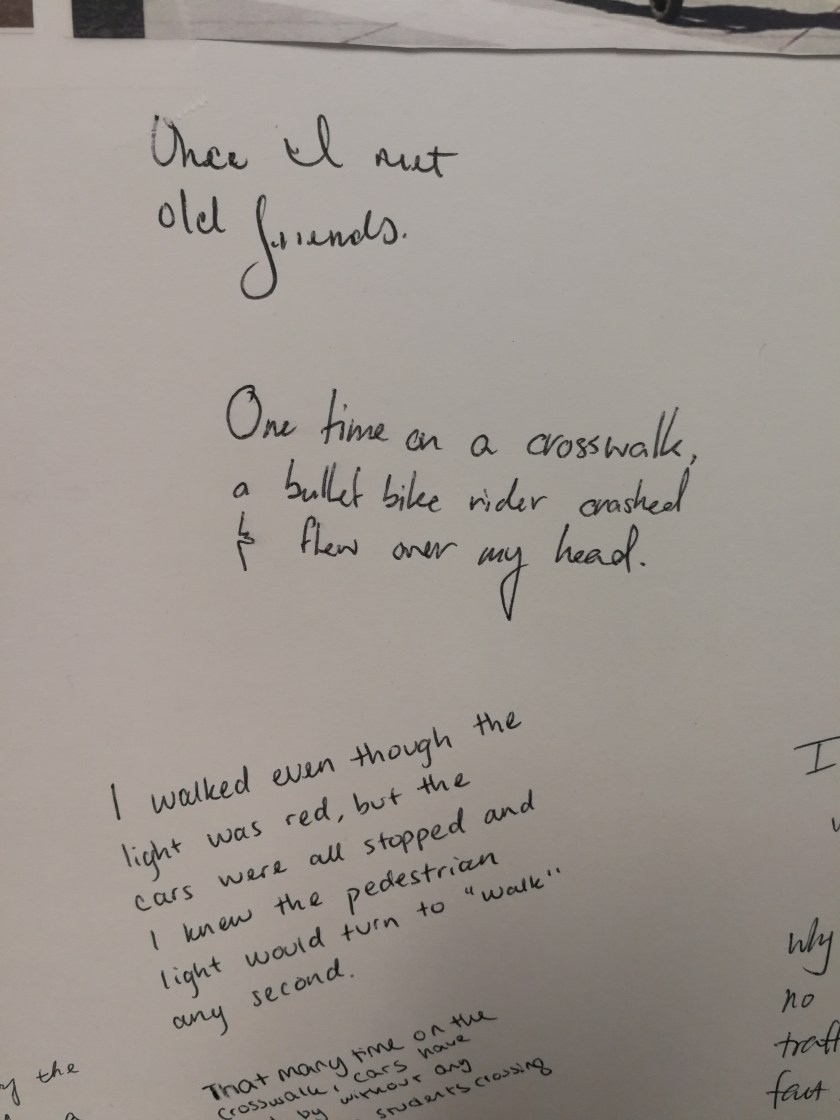 Once I met
old friends.
One time on a crosswalk,
a bullet bike rider crashed
& flew over my head.
I walked even though the
light was red, but the
cars were all stopped and
I knew the pedestrian
light would turn to "walk"
any second.
That many time on the
crosswalk, cars have
by without any
students crossing
the
I
why
no